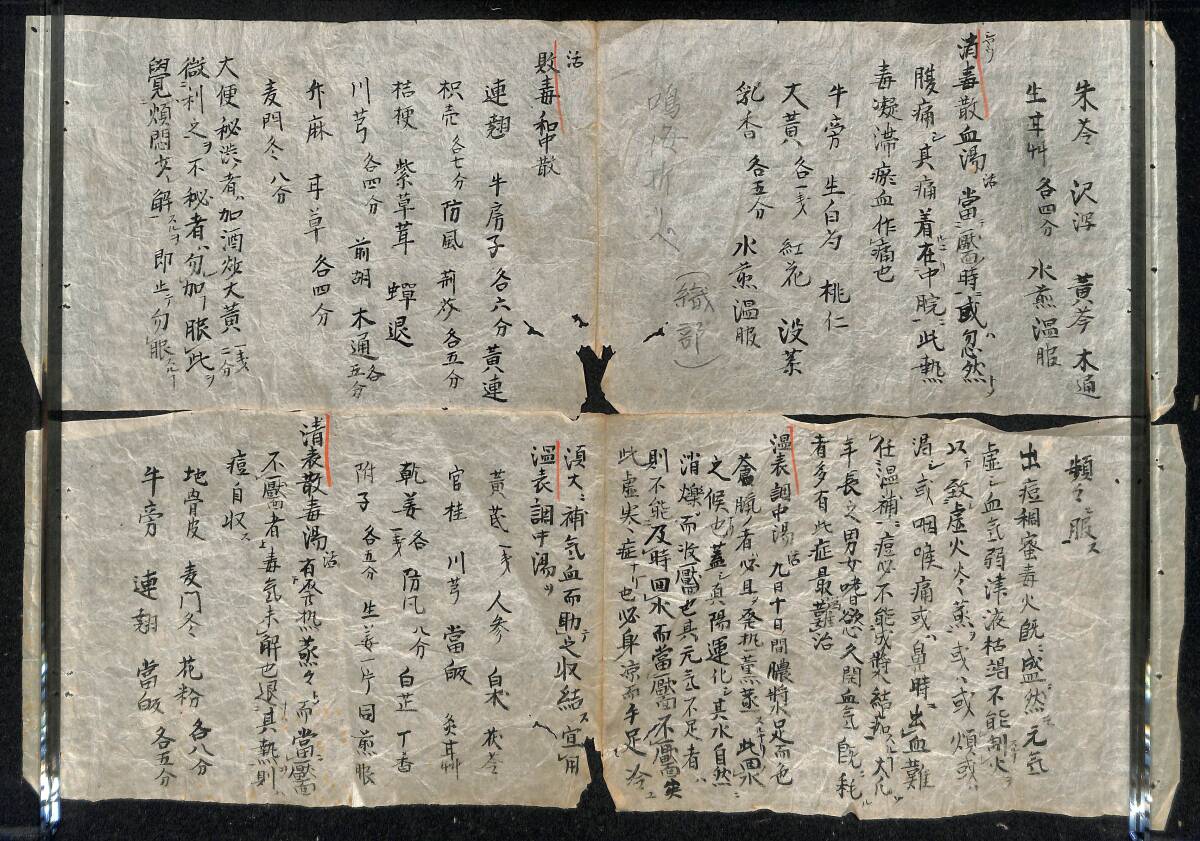 朱苓 沢瀉 黄芩 木通
生耳艸 各四分 水煎温服
消毒散血湯 活 當靨時或忽然
腹痛シ其痛着在中脘此熱
毒凝滞瘀血作痛也
牛旁 生白芍 桃仁
大黄 各一戔 紅花 没薬
乳香 各五分 水煎温服
(織部)
活
敗毒和中散
連翹 牛房子 各六分 黄連
枳壳 各七分 防風 荊芥 各五分
桔梗 紫草茸 蟬退
川芎 各四分 前胡 木通 各五分
升麻 耳草 各四分
麦門冬 八分
大便秘渋者ハ加酒炒大黄 一戔二分
微利之ヲ不秘者ハ勿加服此ヲ
覺煩悶安解スルヲ即止テ勿服
頻々服ス
出痘稠蜜毒火既ニ盛然元気
虚シ血気弱津液枯竭不能制火ヲ
以テ致虚火火蒸ヲ或ハ或煩或ハ
渇シ或咽喉痛或ハ鼻時ニ出血難
任温補痘必不能成漿結痂大凡
年長之男女嗜慾久関血気既ニ耗
者多有此症最難治
温表調中湯 活 九日十日間膿將足而色
蒼臘ノ者必且発熱薫蒸スルヿ此回水
之候也蓋シ真陽運化シ其水自然ニ
消爍而收靨也其元気不足者ハ
則不能及時回水而當靨不靨実
此虚実症ナリ也必身凉而手足冷ユ
須大ニ補気血而助之収結ス宜用
温表調中湯ヲ
黄芪 一戔 人参 白朮 茯苓
官桂 川芎 當皈 炙耳艸
乾姜 各一戔 防风 八分 白芷 丁香
附子 各五分 生姜一片同煎服
清表散毒湯 活 有発熱蒸々而當靨
不靨者毒気未解也退其熱則
痘自収ス
地骨皮 麦门冬 花粉 各八分
牛旁 連翹 當皈 各五分